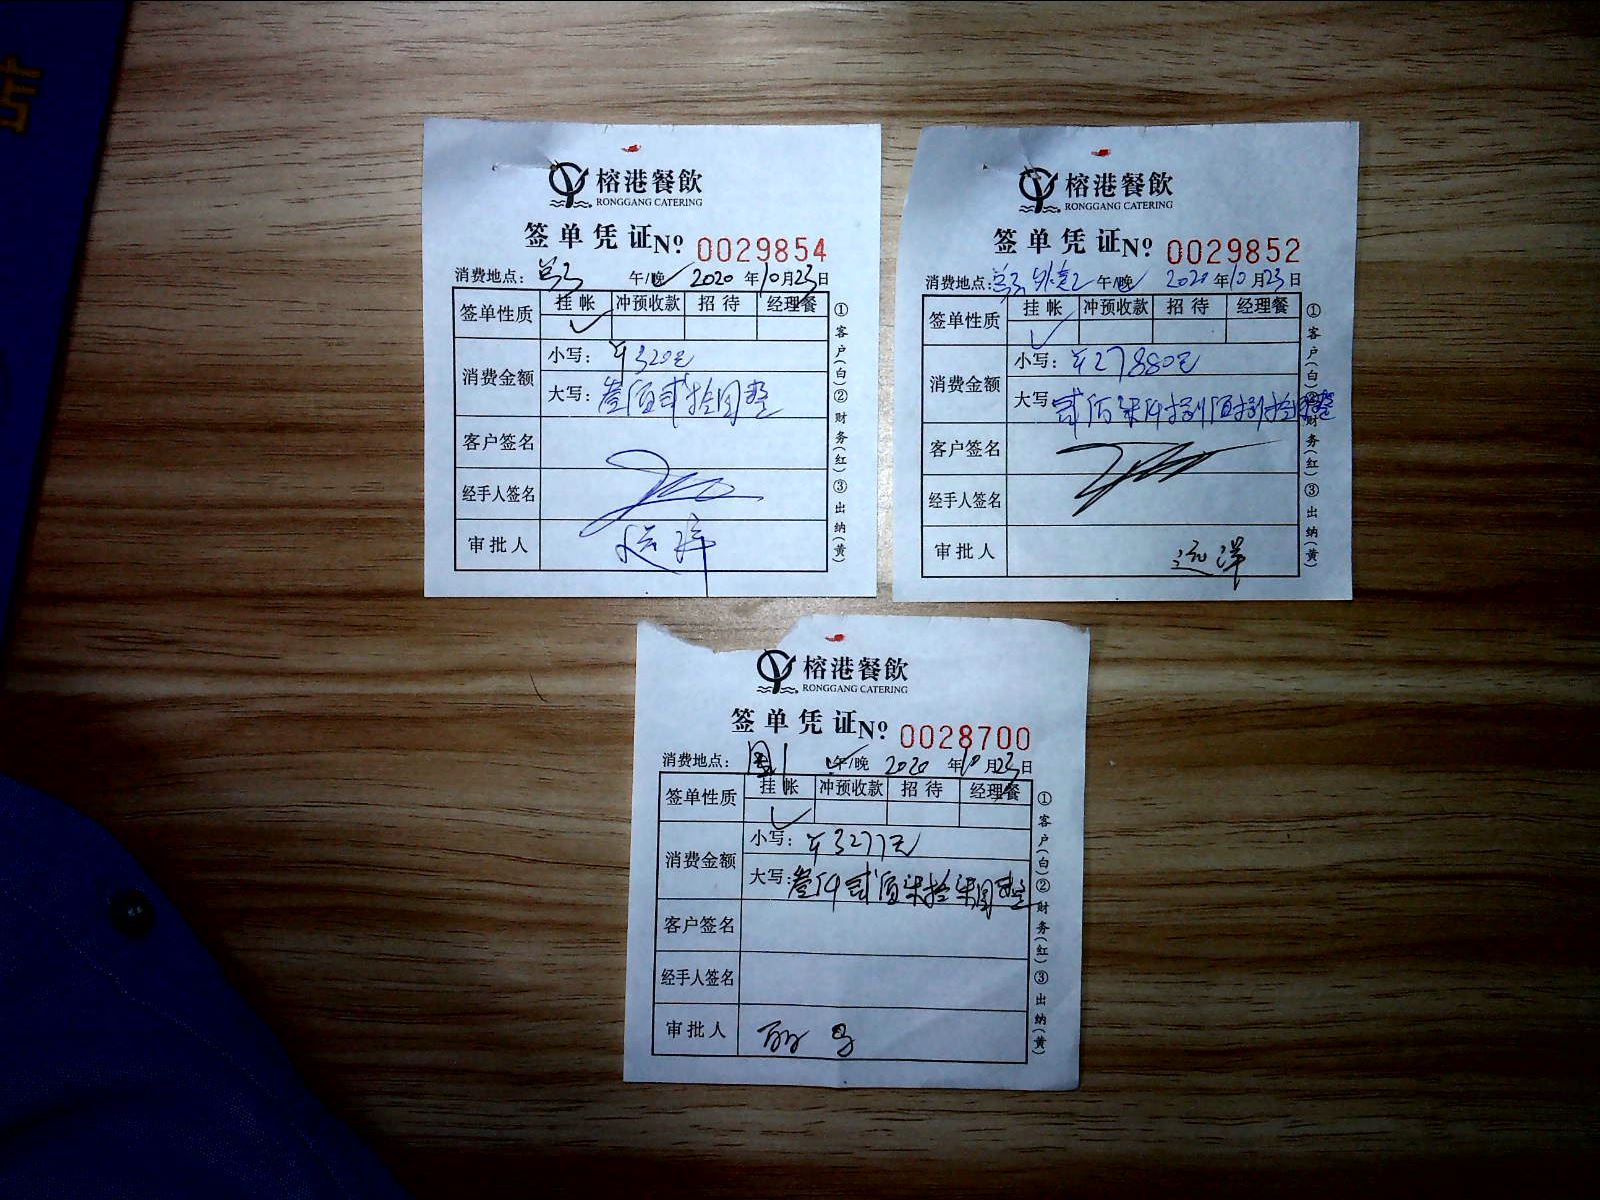 榕港餐飲
RONGGANG CATERING
签单凭证 Nº 0029854
消费地点: 午/晚 2020 年 10 月 23 日
签单性质 挂帐 冲预收款 招待 经理餐
✓
消费金额
小写: ¥320元
大写: 叁佰贰拾圆整
客户签名
经手人签名
审批人 远洋
①客户(白)②财务(红)③出纳(黄)
榕港餐飲
RONGGANG CATERING
签单凭证 Nº 0029852
消费地点: 午/晚 2020 年 10 月 23 日
签单性质 挂帐 冲预收款 招待 经理餐
✓
消费金额
小写: ¥27880元
大写: 贰 柒仟捌佰捌拾圆整
客户签名
经手人签名
审批人 远洋
①客户(白)②财务(红)③出纳(黄)
榕港餐飲
RONGGANG CATERING
签单凭证 Nº 0028700
消费地点: 午/晚 2020 年 10 月 23 日
签单性质 挂帐 冲预收款 招待 经理餐
✓
消费金额
小写: ¥3277元
大写: 叁仟贰佰柒拾柒圆整
客户签名
经手人签名
审批人
①客户(白)②财务(红)③出纳(黄)